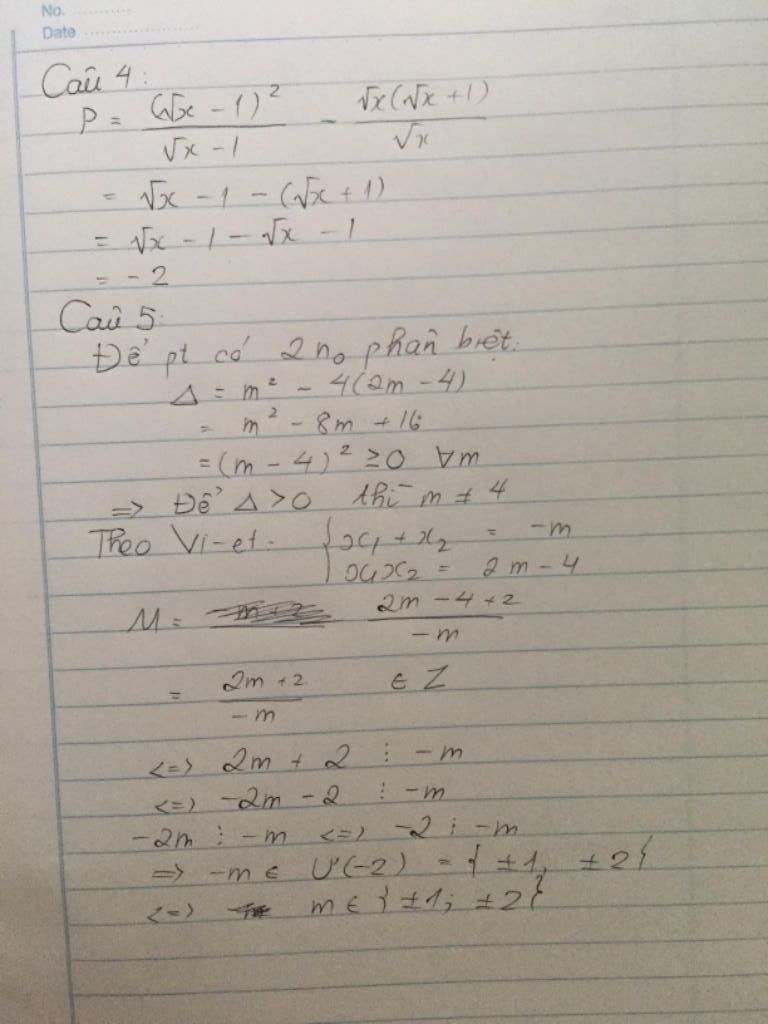 No. ..............
Date ..............
Câu 4:
P = (√x - 1)² / (√x - 1) - √x(√x + 1) / √x
= √x - 1 - (√x + 1)
= √x - 1 - √x - 1
= - 2
Câu 5:
Để pt có 2 n₀ phân biệt:
Δ = m² - 4(2m - 4)
= m² - 8m + 16
= (m - 4)² ≥ 0 ∀m
=> Để Δ > 0 thì m ≠ 4
Theo Vi-et: { x₁ + x₂ = -m
x₁x₂ = 2m - 4
M = (2m - 4 + 2) / (-m)
= (2m + 2) / (-m) ∈ Z
<=> 2m + 2 ⋮ -m
<=> -2m - 2 ⋮ -m
-2m ⋮ -m <=> -2 ⋮ -m
=> -m ∈ Ư(-2) = { ±1, ±2 }
<=> m ∈ { ±1; ±2 }